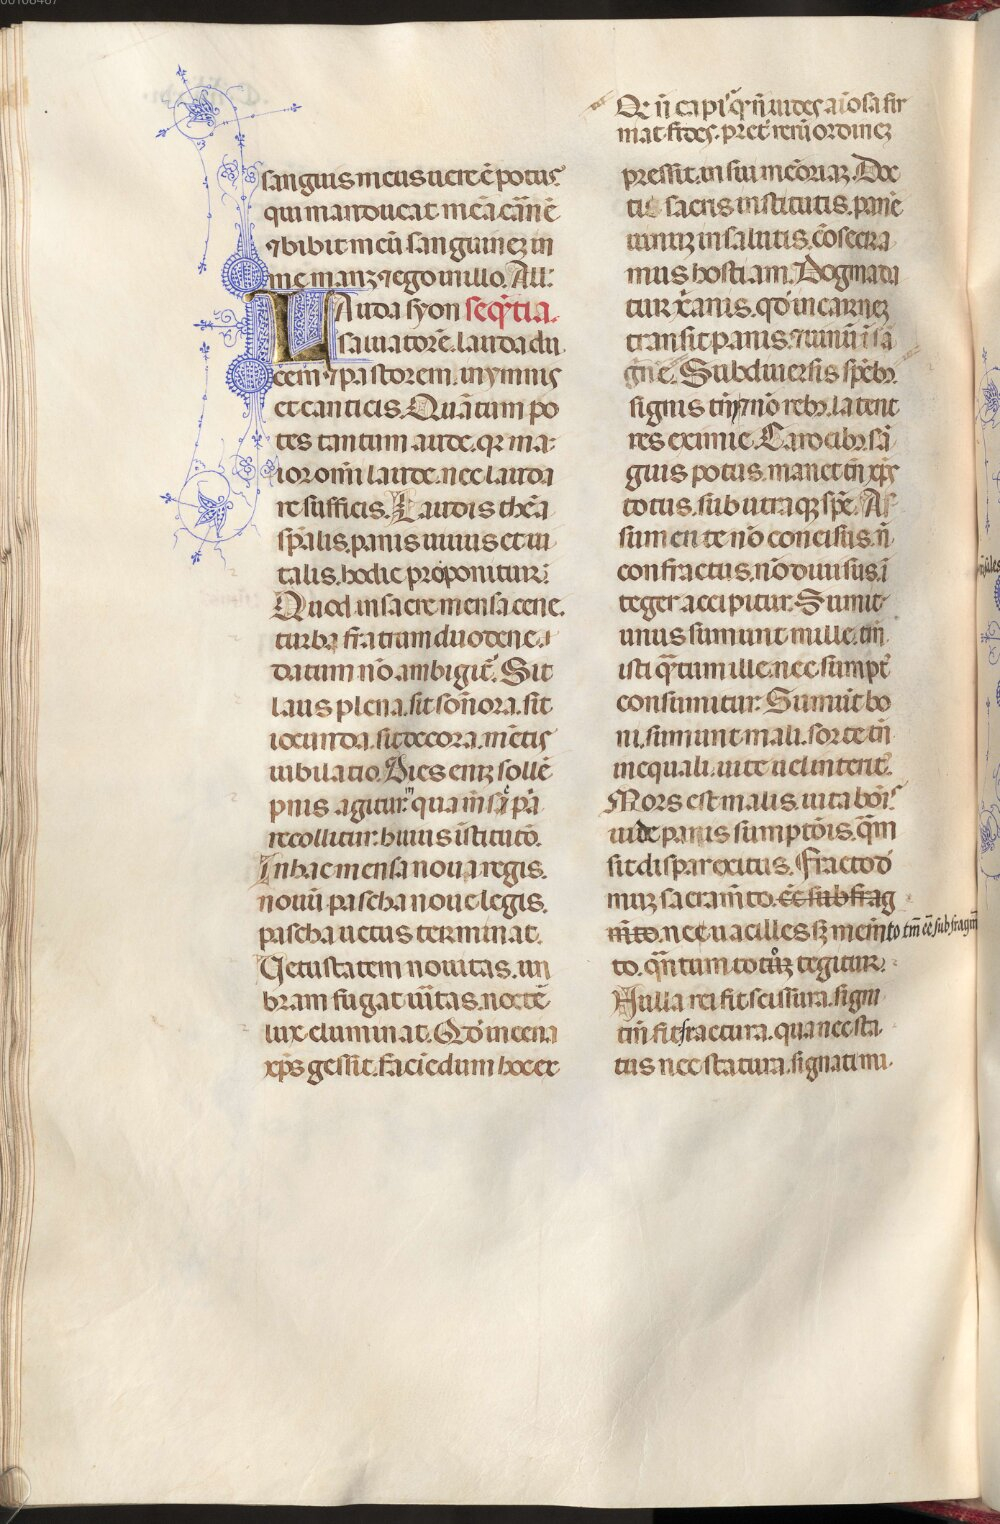 sanguis meus uere ē potus
qui manducat meā carnē
⁊ bibit meū sanguinez in
me manz ⁊ ego in illo. All'.
Lauda syon seqn̄tia.
saluatorē. lauda du
cem ⁊ pastorem. in ymnis
et canticis. Quātum po
tes tantum aude. qr ma-
ior om̄i laude. nec lauda
re sufficis. Laudis thēa
sp̄alis. panis uiuus et ui
talis. hodie proponitur.
Quod in sacre mensa cene.
turbe fratrum duodene.
datum nō ambigit'. Sit
laus plena. sit sonora. sit
iocunda. sit decora. mētis
iubilatio. Dies enz sollē
pnis agitur. in qua mēse pͥa
recolitur: huius īstitutō.
In hac mensa noua regis.
nouū pascha noue legis.
pascha uetus terminat.
Uetustatem nouitas. un
bram fugat uītas. noctē
lux eluminat. Qd' in cena
xp̄s gessit. faciēdum hoc ex
Qr n̄ capis q̄ n̄ uides aīosa fir
mat fides. pret' rerū ordinez
pressit. in sui mēoriaz. Doc
tis sacris institutis. panē
uinuz in salutis. cōsecra
mus hostiam. Dogma da
tur x̄anis. qd' in carnez
transit panis. ⁊ uinū ī sā
gnē. Sub diuersis sp̄ebꝫ.
signis tm̄ ⁊ nō rebꝫ. latent
res eximie. Caro cibꝫ. sā
guis potus. manet tn̄ xp̄s
totus. sub utraqꝫ sp̄e. As
sumente nō concisus. n̄
confractus. nō diuisus. ī
teger accipitur. Sumit
unus sumunt mille. tm̄
isti q̄tum ille. nec sumpt'
consumitur: Sumūt bo
ni. sumunt mali. sorte tn̄
inequali. uite uel interit'.
Mors est malis. uita boīs
uide panis sumptōis. q̄m
sit dispar exitus. Fracto d'
muz sacramīto. ēē sub frag
mīto. ne uacilles sꝫ memīto tm̄ ēē sub fragm̄
to. qn̄tum toto tegitur.
Nulla rei fit scissura. signi
tm̄ fit fractura. qua nec sta
tus nec statura. signati mi.